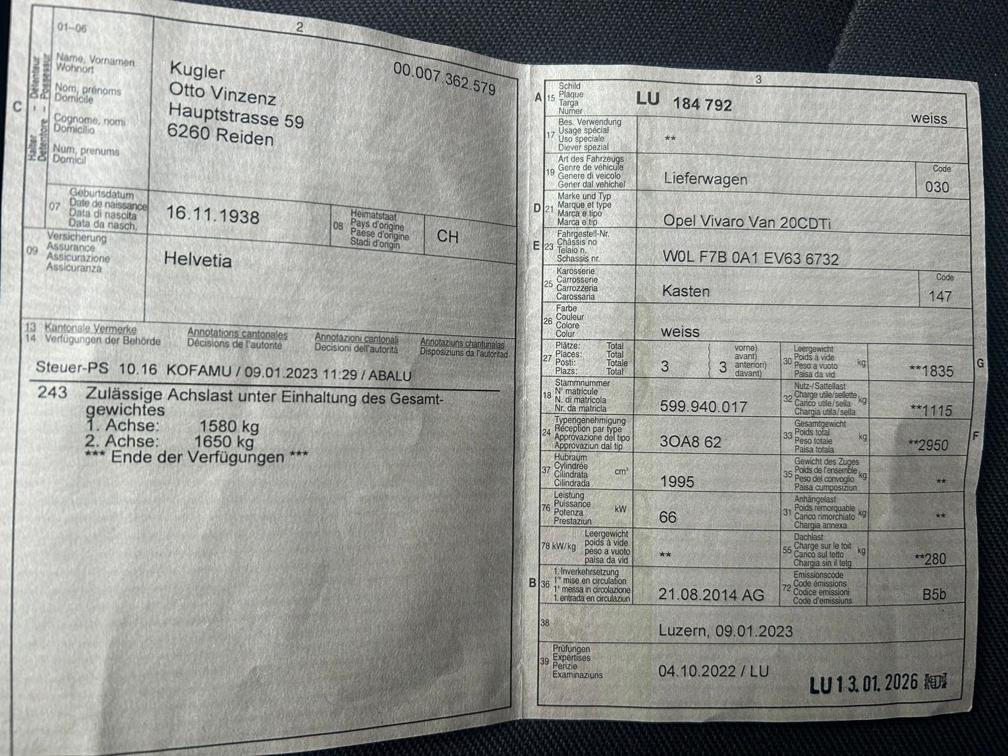 2
C
Halter
Détenteur
Detentore
Possessur
01-06
Name, Vornamen
Wohnort
Nom, prénoms
Domicile
Cognome, nomi
Domicilio
Num, prenums
Domicil
00.007.362.579
Kugler
Otto Vinzenz
Hauptstrasse 59
6260 Reiden
07
Geburtsdatum
Date de naissance
Data di nascita
Data da nasch.
16.11.1938
08
Heimatstaat
Pays d'origine
Paese d'origine
Stadi d'origin
CH
09
Versicherung
Assurance
Assicurazione
Assicuranza
Helvetia
13 Kantonale Vermerke
14 Verfügungen der Behörde
Annotations cantonales
Décisions de l'autorité
Annotazioni cantonali
Decisioni dell'autorità
Annotaziuns chantunalas
Disposiziuns da l'autoritad
Steuer-PS 10.16 KOFAMU / 09.01.2023 11:29 / ABALU
243 Zulässige Achslast unter Einhaltung des Gesamt-
gewichtes
1. Achse: 1580 kg
2. Achse: 1650 kg
*** Ende der Verfügungen ***
3
A 15
Schild
Plaque
Targa
Numer
LU 184 792
weiss
17
Bes. Verwendung
Usage spécial
Uso speciale
Diever spezial
**
19
Art des Fahrzeugs
Genre de véhicule
Genere di veicolo
Gener dal vehichel
Lieferwagen
Code
030
D 21
Marke und Typ
Marque et type
Marca e tipo
Marca e tip
Opel Vivaro Van 20CDTi
E 23
Fahrgestell-Nr.
Châssis no
Telaio n.
Schassis nr.
W0L F7B 0A1 EV63 6732
25
Karosserie
Carrosserie
Carrozzeria
Carossaria
Kasten
Code
147
26
Farbe
Couleur
Colore
Colur
weiss
27
Plätze: Total
Places: Total
Posti: Totale
Plazs: Total
3
3
vorne)
avant)
anteriori)
davant)
30
Leergewicht
Poids à vide
Peso a vuoto
Paisa da vid
kg
**1835
G
18
Stammnummer
N° matricule
N. di matricola
Nr. da matricla
599.940.017
32
Nutz-/Sattellast
Charge utile/sellette
Carico utile/sella
Chargia utila/sella
kg
**1115
24
Typengenehmigung
Réception par type
Approvazione del tipo
Approvaziun dal tip
3OA8 62
33
Gesamtgewicht
Poids total
Peso totale
Paisa totala
kg
**2950
F
37
Hubraum
Cylindrée
Cilindrata
Cilindrada
cm³
1995
35
Gewicht des Zuges
Poids de l'ensemble
Peso del convoglio
Paisa cumposiziun
kg
**
76
Leistung
Puissance
Potenza
Prestaziun
kW
66
31
Anhängelast
Poids remorquable
Carico rimorchiato
Chargia annexa
kg
**
78 kW/kg
Leergewicht
poids à vide
peso a vuoto
paisa da vid
**
55
Dachlast
Charge sur le toit
Carico sul tetto
Chargia sin il tetg
kg
**280
B 36
1. Inverkehrsetzung
1re mise en circulation
1a messa in circolazione
1. entrada en circulaziun
21.08.2014 AG
72
Emissionscode
Code émissions
Codice emissioni
Code d'emissiuns
B5b
38
Luzern, 09.01.2023
39
Prüfungen
Expertises
Perizie
Examinaziuns
04.10.2022 / LU
LU 13.01.2026